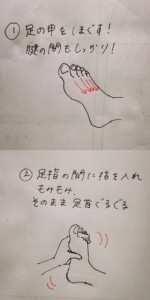 ① 足の甲をしまぐす！
腱の間もしっかり！
② 足指の間に指を入れ
もみもみ。
そのまま 足首ぐるぐる